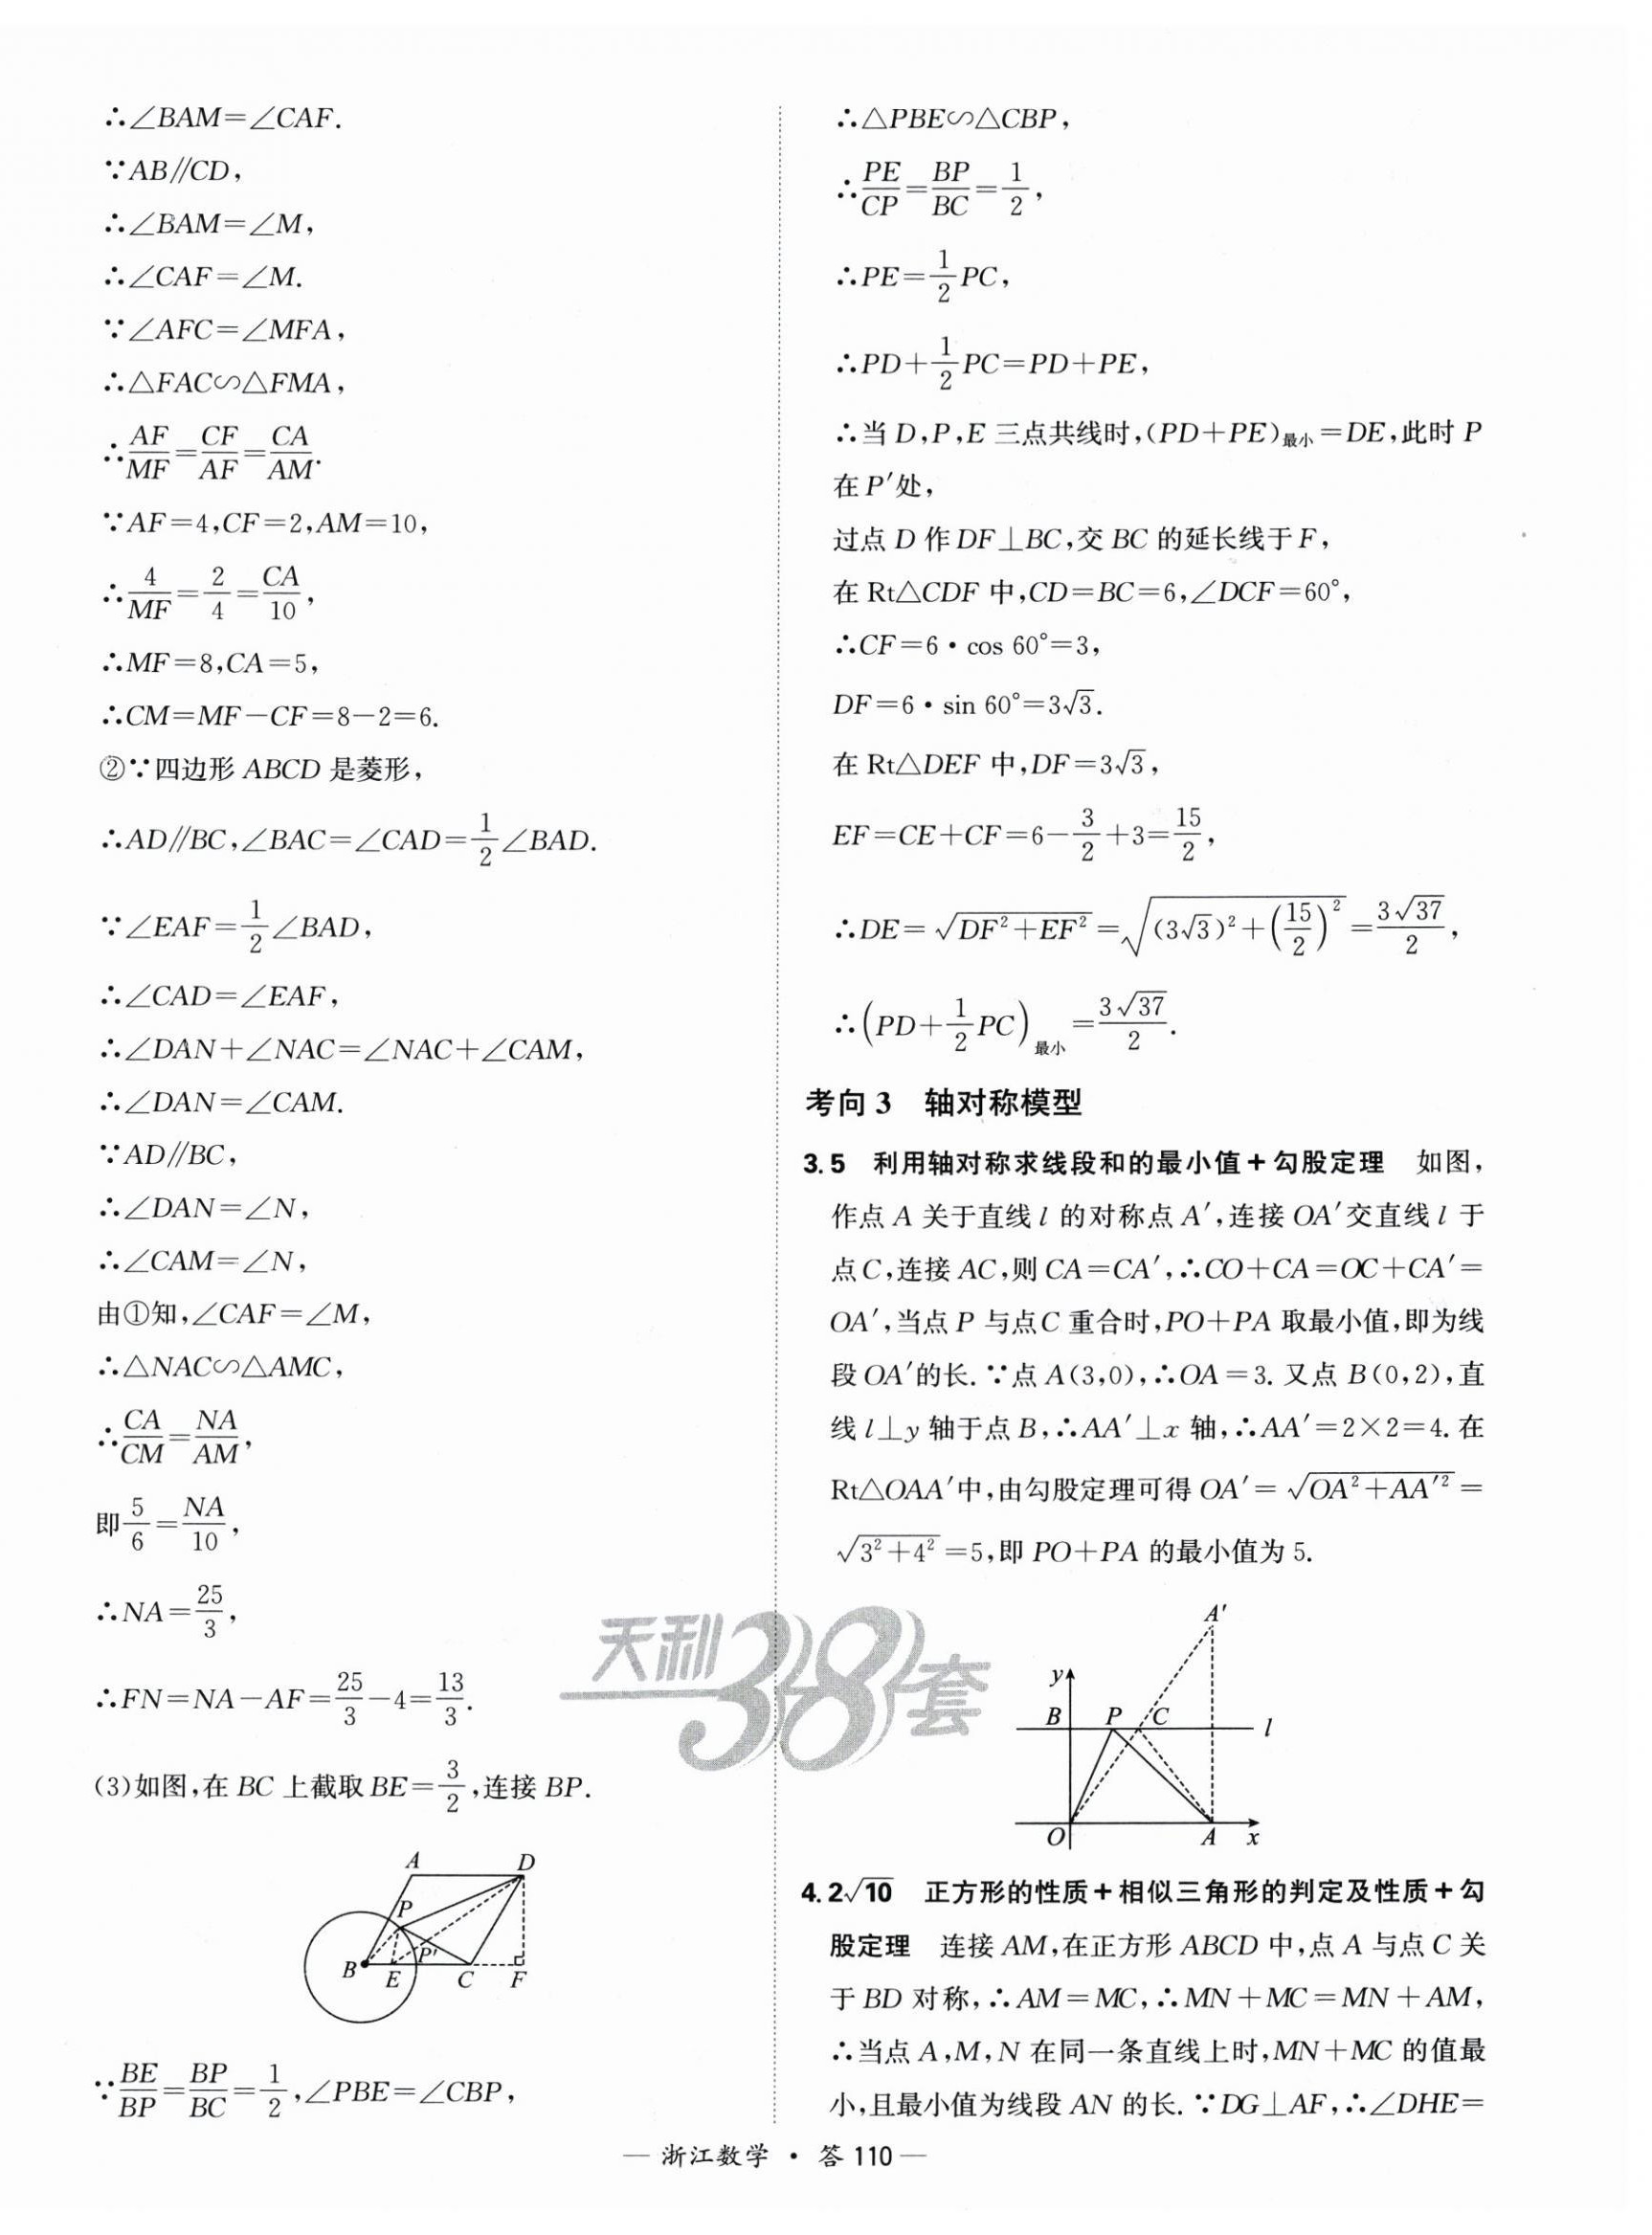 ∴∠BAM=∠CAF.
∵AB∥CD,
∴∠BAM=∠M,
∴∠CAF=∠M.
∵∠AFC=∠MFA,
∴△FAC∽△FMA,
∴AF/MF=CF/AF=CA/AM.
∵AF=4,CF=2,AM=10,
∴4/MF=2/4=CA/10,
∴MF=8,CA=5,
∴CM=MF-CF=8-2=6.
②∵四边形 ABCD 是菱形,
∴AD∥BC,∠BAC=∠CAD=1/2∠BAD.
∵∠EAF=1/2∠BAD,
∴∠CAD=∠EAF,
∴∠DAN+∠NAC=∠NAC+∠CAM,
∴∠DAN=∠CAM.
∵AD∥BC,
∴∠DAN=∠N,
∴∠CAM=∠N,
由①知,∠CAF=∠M,
∴△NAC∽△AMC,
∴CA/CM=NA/AM,
即5/6=NA/10,
∴NA=25/3,
∴FN=NA-AF=25/3-4=13/3.
(3)如图,在 BC 上截取 BE=3/2,连接 BP.
A D
P
B E P′ C F
∵BE/BP=BP/BC=1/2,∠PBE=∠CBP,
∴△PBE∽△CBP,
∴PE/CP=BP/BC=1/2,
∴PE=1/2PC,
∴PD+1/2PC=PD+PE,
∴当 D,P,E 三点共线时,(PD+PE)最小=DE,此时 P
在 P′处,
过点 D 作 DF⊥BC,交 BC 的延长线于 F,
在 Rt△CDF 中,CD=BC=6,∠DCF=60°,
∴CF=6·cos 60°=3,
DF=6·sin 60°=3√3.
在 Rt△DEF 中,DF=3√3,
EF=CE+CF=6-3/2+3=15/2,
∴DE=√(DF²+EF²)=√((3√3)²+(15/2)²)=3√37/2,
∴(PD+1/2PC)最小=3√37/2.
考向 3 轴对称模型
3.5 利用轴对称求线段和的最小值+勾股定理 如图,
作点 A 关于直线 l 的对称点 A′,连接 OA′交直线 l 于
点 C,连接 AC,则 CA=CA′,∴CO+CA=OC+CA′=
OA′,当点 P 与点 C 重合时,PO+PA 取最小值,即为线
段 OA′的长.∵点 A(3,0),∴OA=3.又点 B(0,2),直
线 l⊥y 轴于点 B,∴AA′⊥x 轴,∴AA′=2×2=4.在
Rt△OAA′中,由勾股定理可得 OA′=√(OA²+AA′²)=
√(3²+4²)=5,即 PO+PA 的最小值为 5.
A′
y
B P C l
O A x
4.2√10 正方形的性质+相似三角形的判定及性质+勾
股定理 连接 AM,在正方形 ABCD 中,点 A 与点 C 关
于 BD 对称,∴AM=MC,∴MN+MC=MN+AM,
∴当点 A,M,N 在同一条直线上时,MN+MC 的值最
小,且最小值为线段 AN 的长.∵DG⊥AF,∴∠DHE=
天利38套
— 浙江数学 · 答 110 —